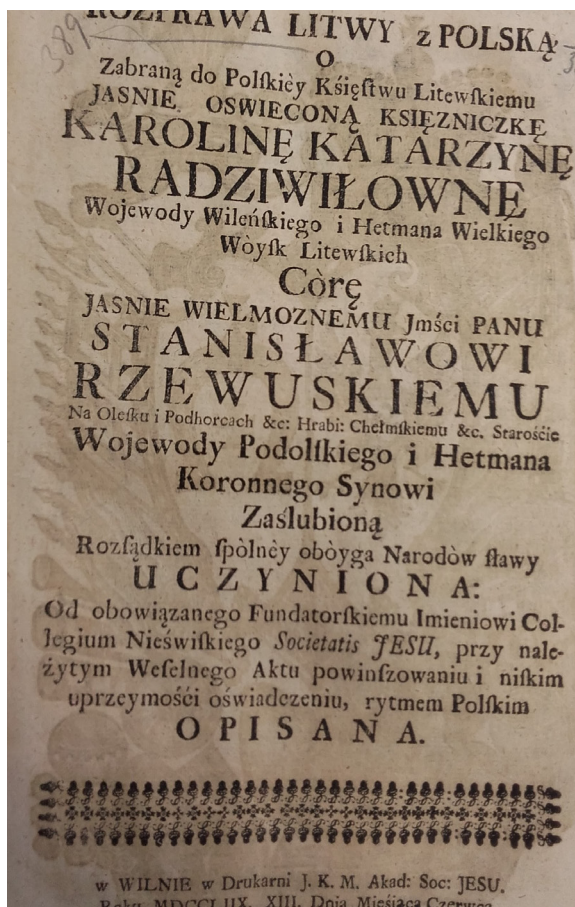 389
ROZPRAWA LITWY z POLSKĄ
O
Zabraną do Polſkiéy Kśięſtwu Litewſkiemu
JASNIE OSWIECONĄ KSIĘZNICZKĘ
KAROLINĘ KATARZYNĘ
RADZIWIŁOWNĘ
Wojewody Wileńſkiego i Hetmana Wielkiego
Wòyſk Litewſkich
Còrę
JASNIE WIELMOZNEMU Jmści PANU
STANISŁAWOWI
RZEWUSKIEMU
Na Oleſku i Podhorcach &c: Hrabi: Chełmſkiemu &c. Starośćie
Wojewody Podolſkiego i Hetmana
Koronnego Synowi
Zaślubioną
Rozſądkiem ſpòlnèy obòyga Narodòw ſławy
UCZYNIONA:
Od obowiązanego Fundatorſkiemu Imieniowi Col-
legium Nieświſkiego Societatis JESU, przy nale-
żytym Weſelnego Aktu powinſzowaniu i niſkim
uprzeymośći oświadczeniu, rytmem Polſkim
OPISANA.
w WILNIE w Drukarni J. K. M. Akad: Soc: JESU.
Roku MDCCLIIX. XIII. Dnia Mieśiąca Czerwca